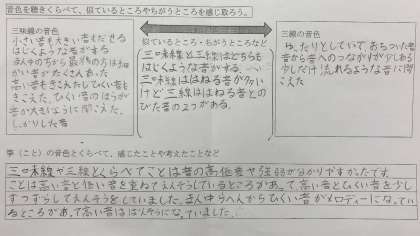 音色を聴きくらべて、似ているところやちがうところを感じ取ろう。
三味線の音色
小さい音も大きい音もだせる
はじくような音がする
まん中の方から最後の方は細
かい音がたくさんあった
高い音もきこえたしひくい音も
きこえた。ひくい音のほうが
音が大きいように聞こえた。
しっかりした音
似ているところ・ちがうところなど
三味線と三線はどちらも
はじくような音がする。
三味線ははねる音が多い
けど三線ははねる音との
びた音の2つがある。
三線の音色
ゆったりとしていて、おちついた音
音から音へのつながりが少しある
少しだけ流れるような音に聞
こえた
箏（こと）の音色とくらべて、感じたことや考えたことなど
三味線や三線とくらべてことは音の高低差や強弱が分かりやすかったです。
ことは高い音と低い音を重ねてえんそうしているところがあって、高い音とひくい音を少し
ずつずらしてえんそうをしていました。まん中らへんからひくい音がメロディーになってい
るところがあって高い音はばんそうになっていました。